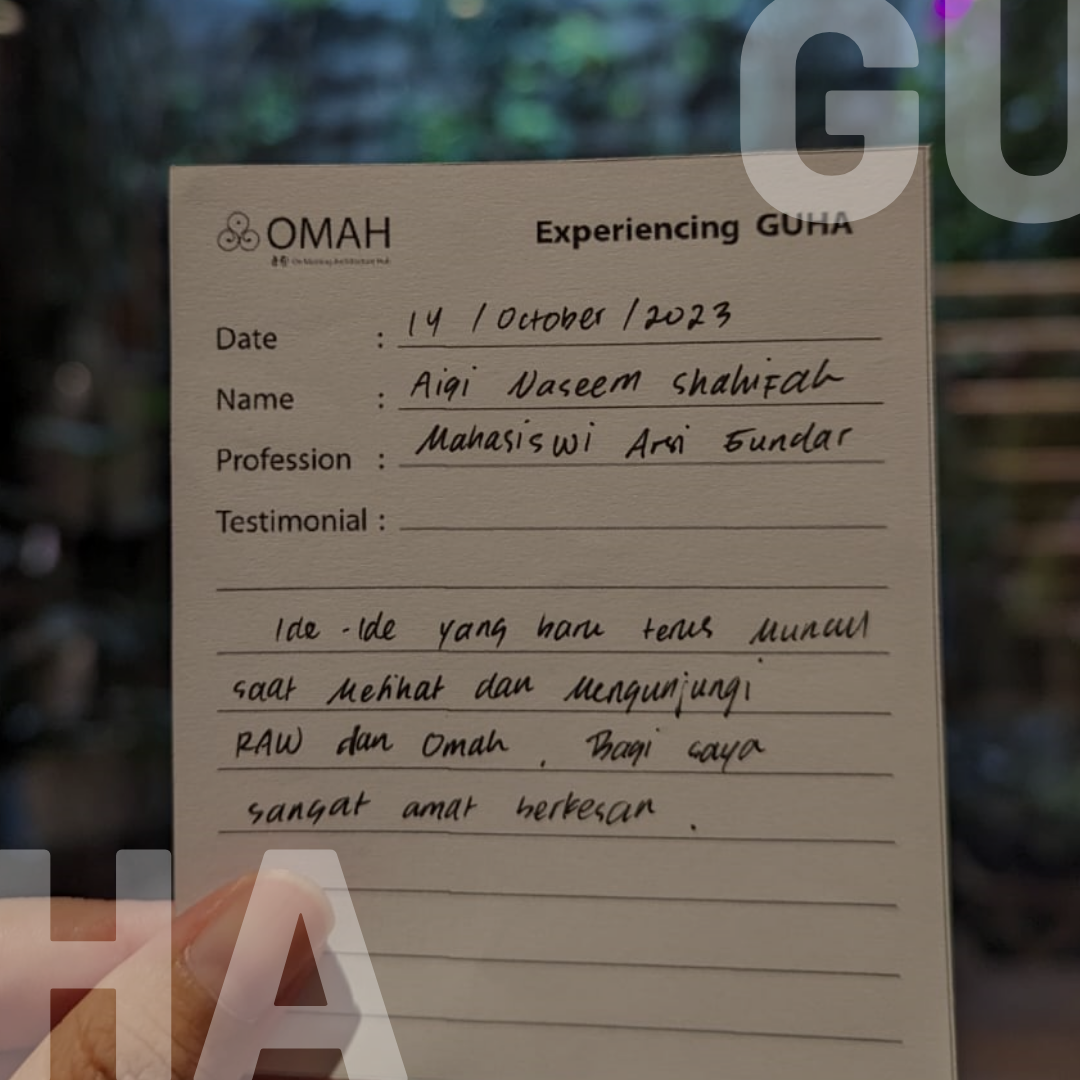 GU
OMAH
Experiencing GUHA
Date : 14 / October / 2023
Name : Aiqi Naseem Shahifah
Profession : Mahasiswi Arsi Gundar
Testimonial :
Ide-Ide yang baru terus Muncul
saat Melihat dan Mengunjungi
RAW dan Omah . Bagi saya
sangat amat berkesan .
HA